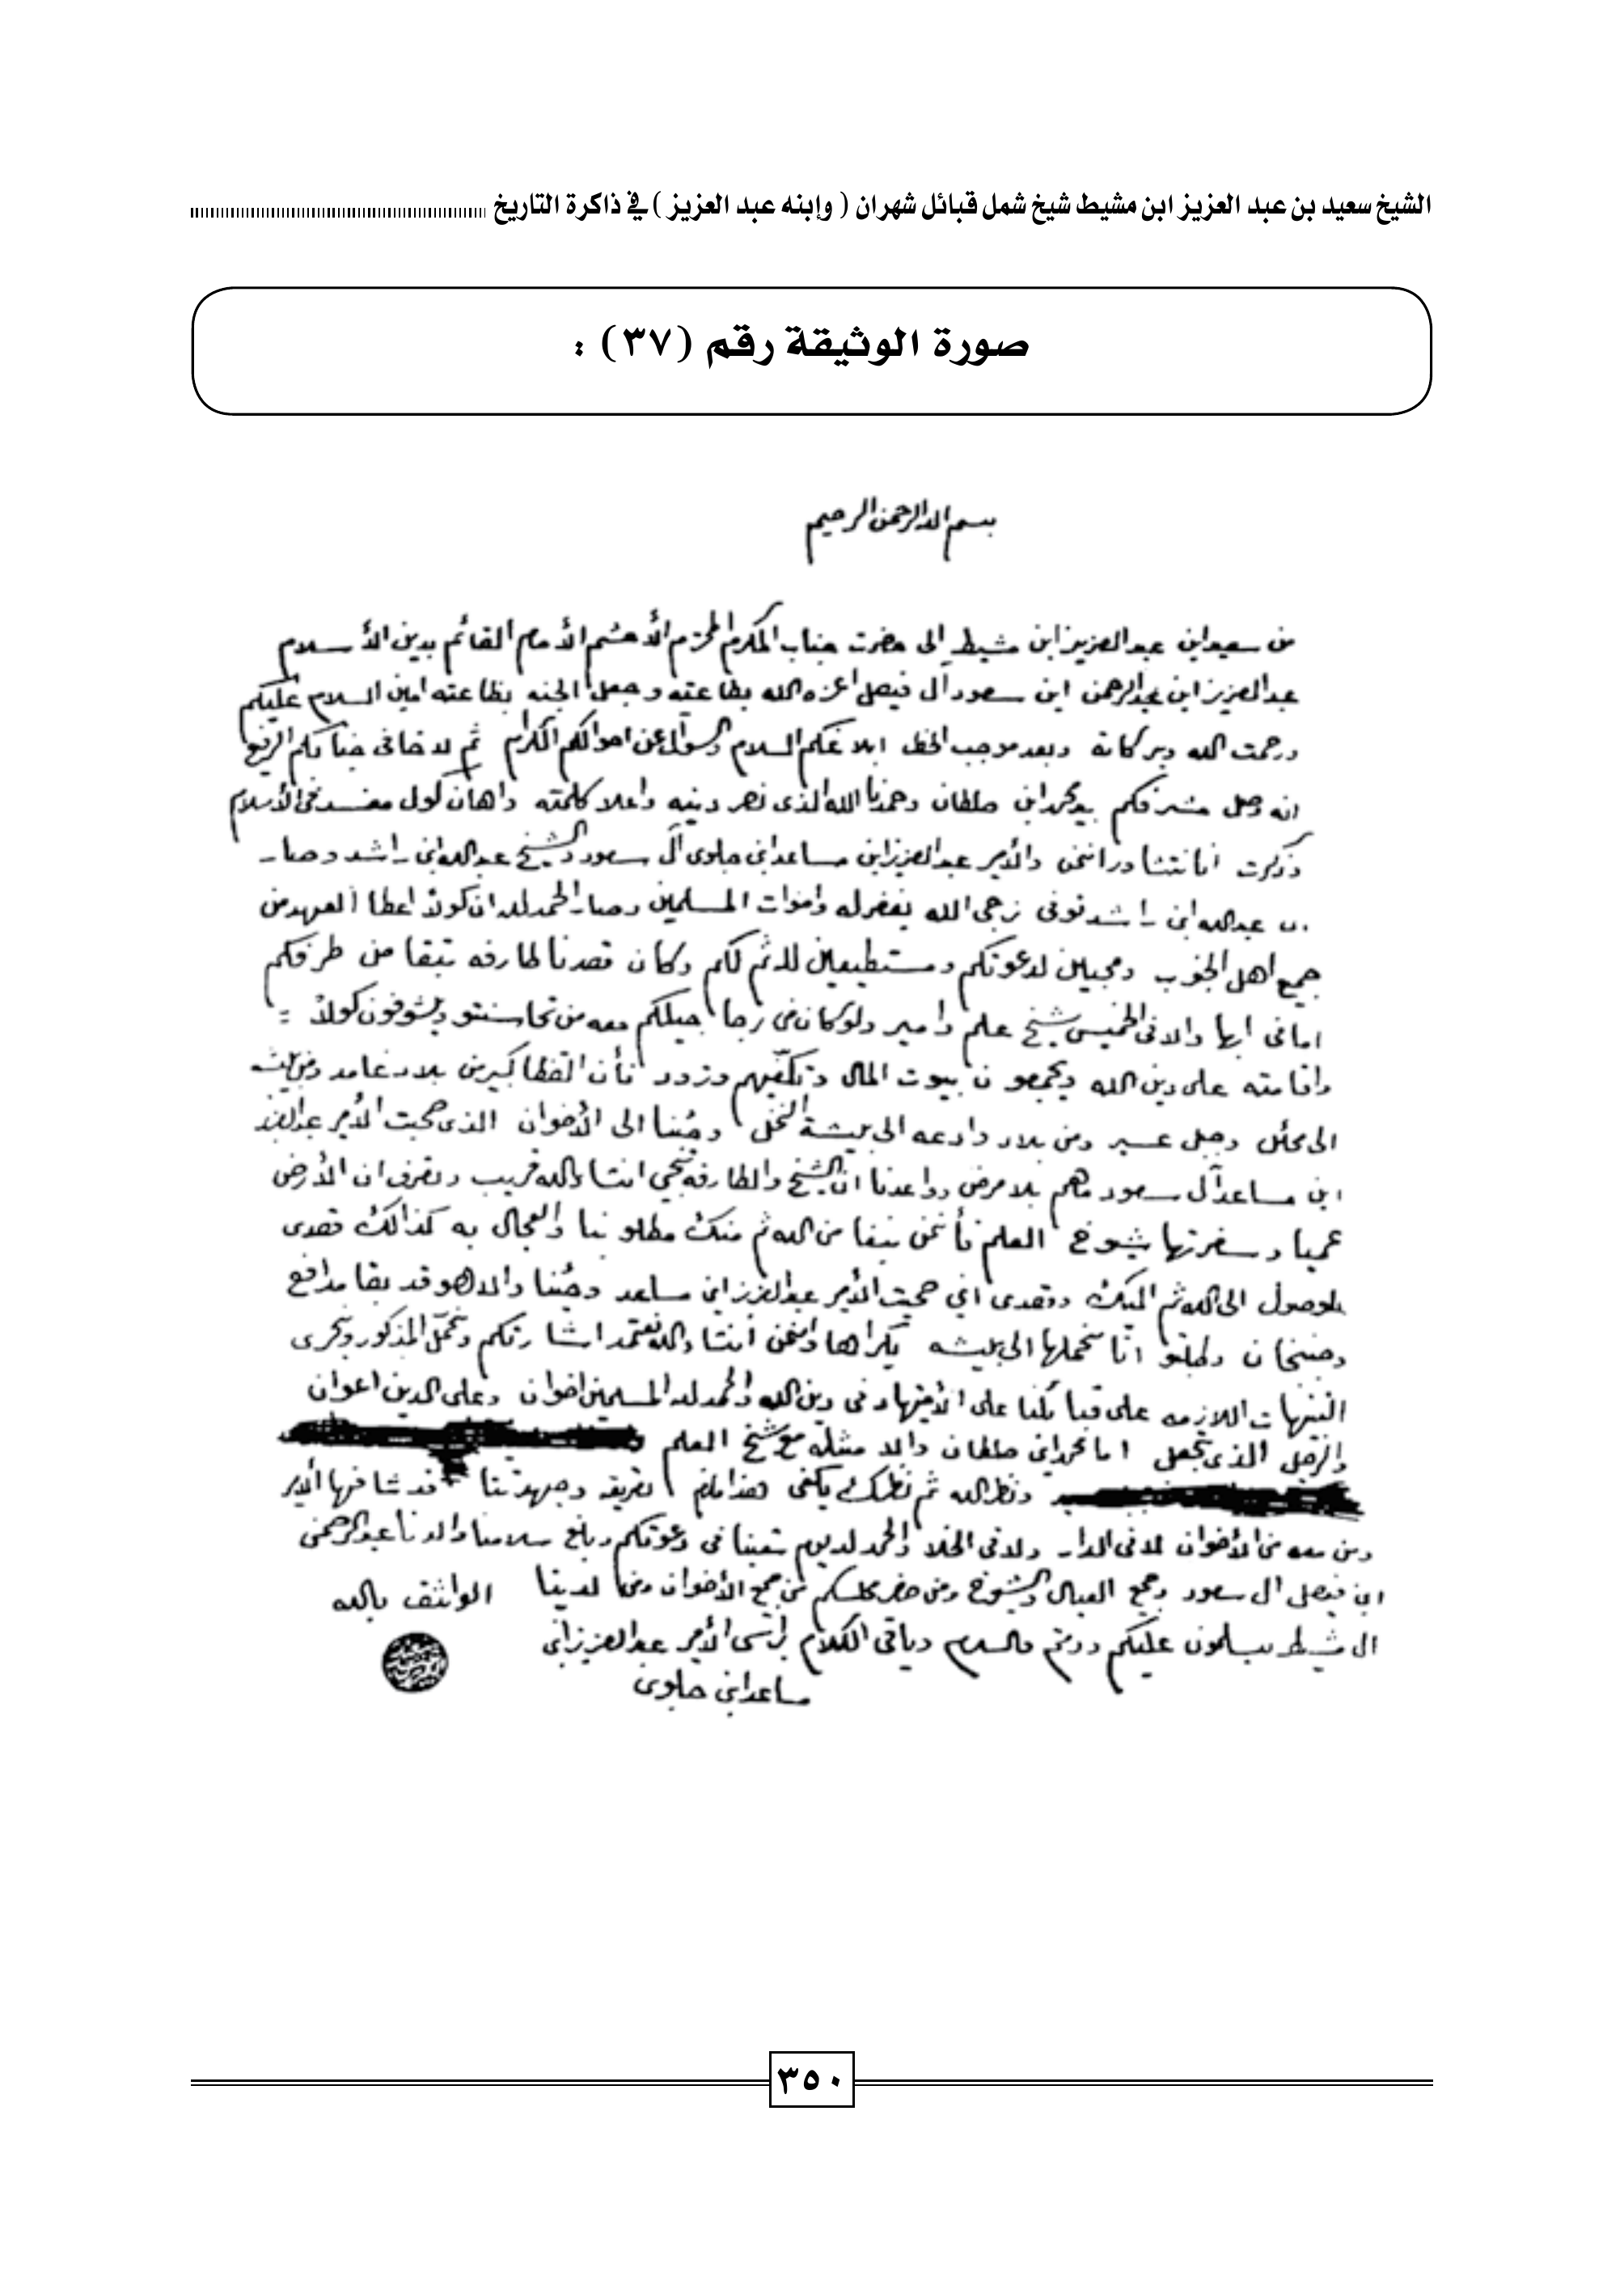 الشيخ سعيد بن عبد العزيز ابن مشيط شيخ شمل قبائل شهران ( وإبنه عبد العزيز ) في ذاكرة التاريخ
صورة الوثيقة رقم (٣٧) :
بسم الله الرحمن الرحيم
من سعيد ابن عبد العزيز ابن مشيط الى حضرت جناب المكرم المحترم الأحشم الأمام القائم بدين الأسلام
عبد العزيز ابن عبد الرحمن ابن سعود ال فيصل اعزه الله بطاعته وجعل الجنه بطاعته امين السلام عليكم
ورحمت الله وبركاته وبعد موجب الخط ابلاغكم السلام والسوال عن احوالكم الكرام ثم لا خافى جنابكم الرفيع
انه وصل مشرفكم بيد محمد ابن سلطان وحمدنا الله الذى نصر دينه واعلا كلمته واهان كول مفسد فى الأسلام
وذكرت اننا نتشاور انحن والأمير عبد العزيز ابن مساعد ابن جلوى آل سعود والشيخ عبد الله ابن راشد وصار
عبد الله ابن راشد توفى نرجى الله يغفر له واموات المسلمين وصار الحمد لله ان كولاً اعطا العهد من
جميع اهل الجنوب ومجيبين لدعوتكم ومستطيعين لله ثم لكم وكان قصدنا طارفه تبقا من طرفكم
اما فى ابها والا فى الخميس شيخ علم وامير ولو كان من معه من
واقامته على دين الله ويجمعون بيوت المال بلاد غامد ومن بيشه
الى محائل وجبل عسير ومن بلاد وادعه الى بيشة النخل وجُبنا الى الأخوان الذى صحبت الأمير عبد العزيز
ابن مساعد آل سعود ماهم بلا مرض وواعدنا ان الشيخ والطارفه تجي انشا والله قريب وتعرف ان الأرض
عميا وسفرتها شيوخ العلم فأنحن نبغا من الله ثم منك مطلوبنا والعجال به كذالك قصدى
بلوصول الى الله ثم اليك وقصدى اني صحبت الأمير عبد العزيز ابن مساعد وجُبنا والا هو قد بقا مدافع
انا نحملها الى بيشه انشا والله نعتمد اشارتكم ونحمل المذكور ونجرى
التنبيهات اللازمه على قبائلنا على دين الله والحمد لله المسلمين اخوان وعلى الدين اعوان
والرجل الذى تجعل اما محمد ابن سلطان والا مثله مع شيخ العلم
ونظر الله ثم نظرك يكفى هذا مالزم تعريفه قد شافها الأمير
ومن معه من الأخوان لا فى الدار ولا فى الخلا والحمد لله يوم فى دعوتكم وبلغ سلامنا والدنا عبد الرحمن
ابن فيصل ال سعود وجميع العيال والشيوخ ومن حضر مجلسكم من جميع الأخوان ومن لدينا
الواثق بالله
ال مشيط يسلمون عليكم ودمتم والسلام وباقى الكلام براس الأمير عبد العزيز ابن
مساعد ابن جلوى
٣٥٠